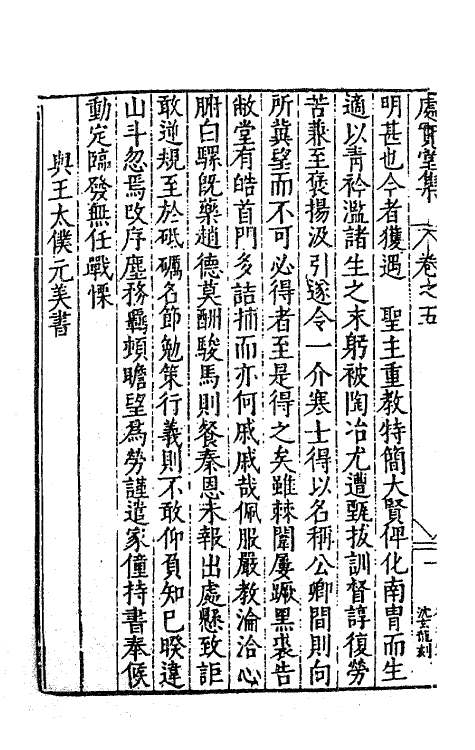 處實堂集 卷之五 一
沈玄龍刻
明甚也今者獲遇　聖主重教特簡大賢俾化南胄而生
適以青衿濫諸生之末躬被陶冶尤遭甄拔訓督諄復勞
苦兼至褒揚汲引遂令一介寒士得以名稱公卿間則向
所冀望而不可必得者至是得之矣雖棘闈屢蹶黑裘告
敝堂有皓首門多詰捕而亦何戚戚哉佩服嚴教淪洽心
腑白騾既藥趙德莫酬駿馬則餐秦恩未報出處懸致詎
敢逆規至於砥礪名節勉策行義則不敢仰負知巳暌違
山斗忽焉改序塵務羈頓瞻望為勞謹遣家僮持書奉候
動定臨發無任戰慄
與王太僕元美書